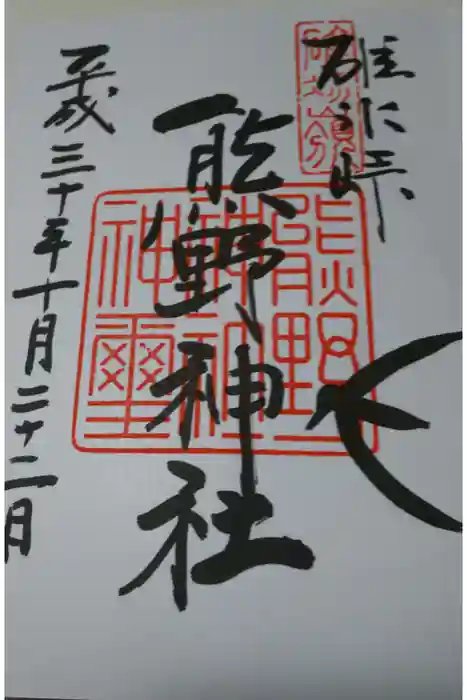 碓氷峠
碓氷嶺
熊野神社
熊野
神社
神璽
平成三十年十月二十二日